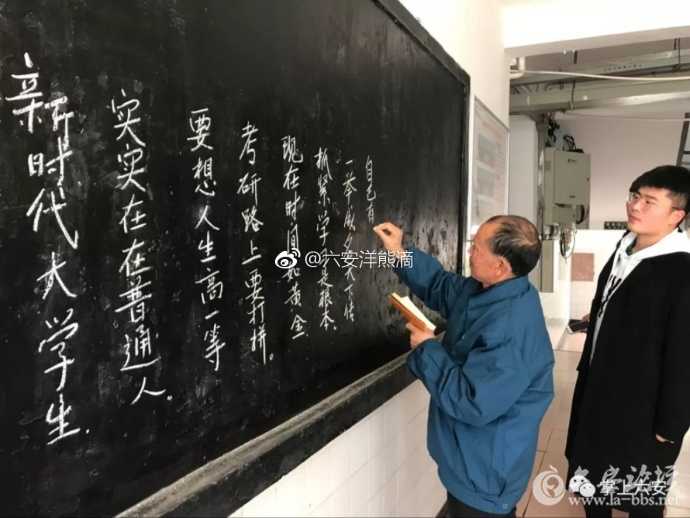 新时代大学生.
实实在在普通人.
要想人生高一等
考研路上要打拼。
现在时间如黄金
抓紧学是根本.
一举成名下传
自己有
@六安洋熊滴
六安论坛
掌上六安
www.la-bbs.net